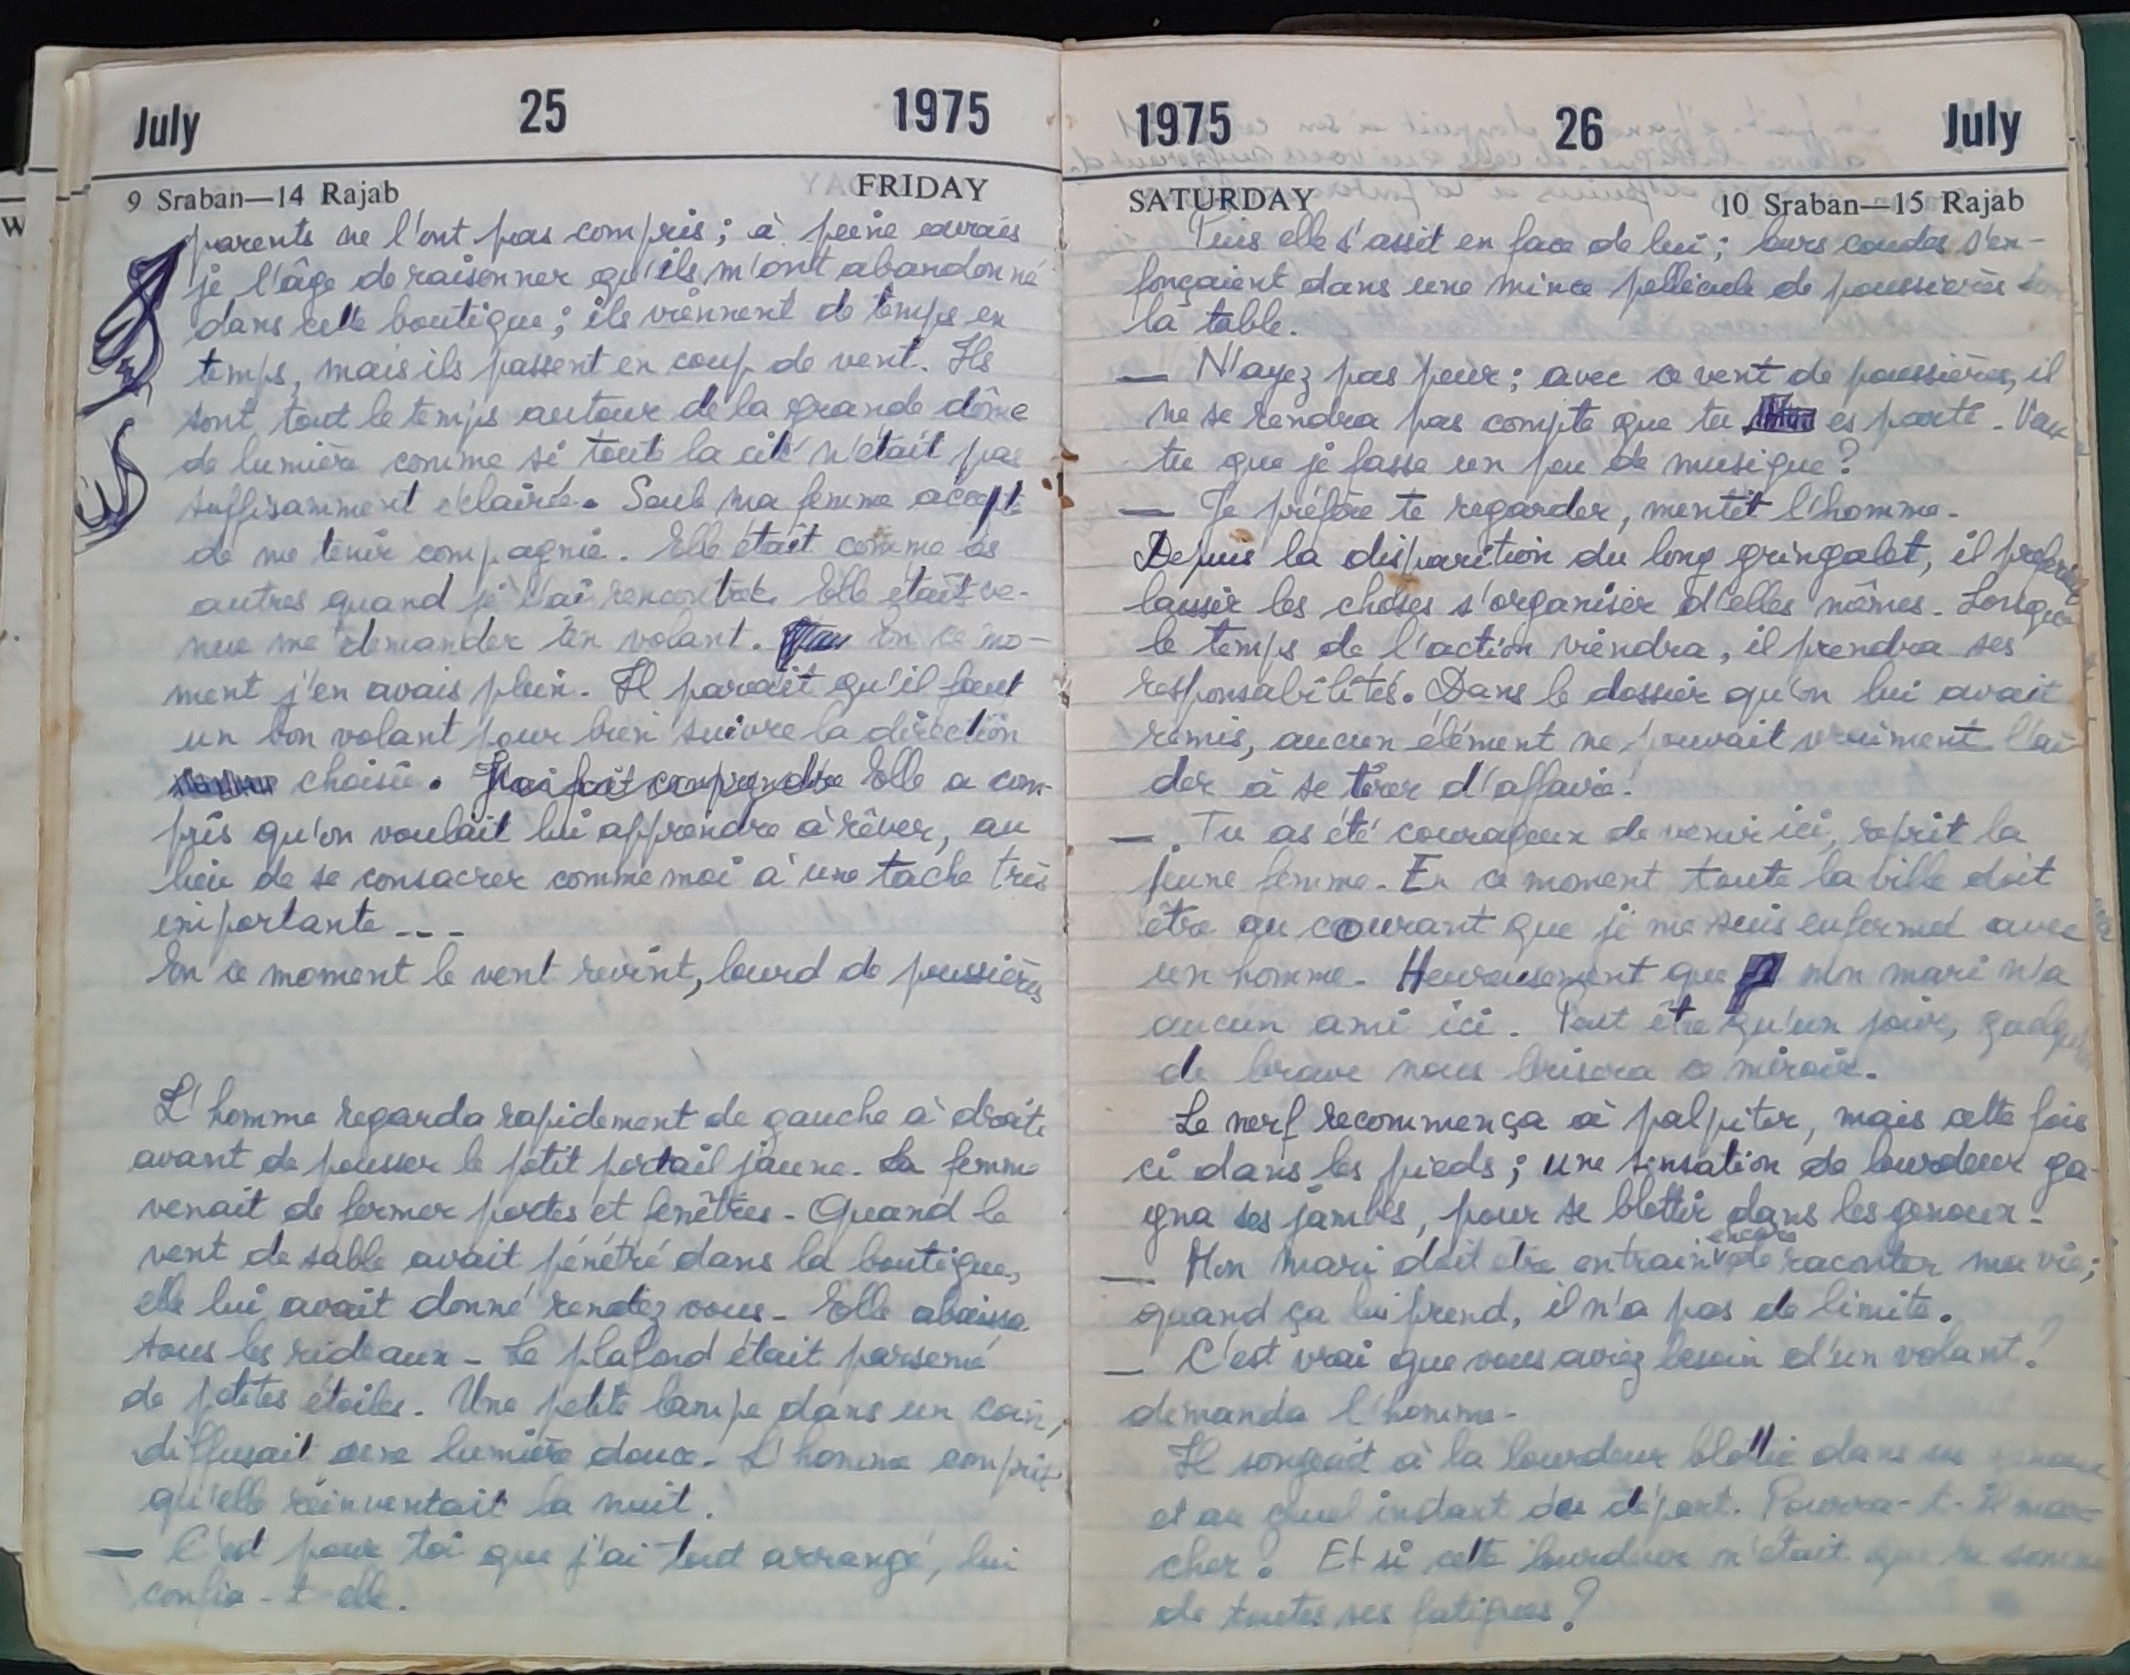 July 25 1975
9 Sraban—14 Rajab FRIDAY
parents ne l'ont pas compris ; à peine avais
je l'âge de raisonner qu'ils m'ont abandonné
dans cette boutique ; ils viennent de temps en
temps, mais ils passent en coup de vent. Ils
sont tout le temps autour de la grande dôme
de lumière comme si toute la cité n'était pas
suffisamment éclairée. Seule ma femme accepte
de me tenir compagnie. Elle était comme les
autres quand je l'ai rencontrée. Elle était ve-
nue me demander un volant. En ce mo-
ment j'en avais plein. Il paraît qu'il faut
un bon volant pour bien suivre la direction
choisie. J'ai fait comprendre Elle a com-
pris qu'on voulait lui apprendre à rêver, au
lieu de se consacrer comme moi à une tache très
importante ---
En ce moment le vent revint, lourd de poussières
L'homme regarda rapidement de gauche à droite
avant de pousser le petit portail jaune. La femme
venait de fermer portes et fenêtres. Quand le
vent de sable avait pénétré dans la boutique,
elle lui avait donné rendez vous. Elle abaissa
tous les rideaux. Le plafond était parsemé
de petites étoiles. Une petite lampe dans un coin,
diffusait une lumière douce. L'homme comprit
qu'elle réinventait la nuit.
— C'est pour toi que j'ai tout arrangé, lui
confia-t-elle.
1975 26 July
SATURDAY 10 Sraban—15 Rajab
Puis elle s'assit en face de lui ; leurs coudes s'en-
fonçaient dans une mince pellicule de poussières sur
la table.
— N'ayez pas peur ; avec ce vent de poussières, il
ne se rendra pas compte que tu es parti. Veux
tu que je fasse un peu de musique ?
— Je préfère te regarder, mentit l'homme.
Depuis la disparition du long gringalet, il préférait
laisser les choses s'organiser d'elles mêmes. Lorsque
le temps de l'action viendra, il prendra ses
responsabilités. Dans le dossier qu'on lui avait
remis, aucun élément ne pouvait vraiment l'ai-
der à se tirer d'affaire.
— Tu as été courageux de venir ici, reprit la
jeune femme. En ce moment toute la ville doit
être au courant que je me suis enfermé avec
un homme. Heureusement que mon mari n'a
aucun ami ici. Peut être qu'un jour, quelqu'un
de brave nous brisera ce miroir.
Le nerf recommença à palpiter, mais cette fois
ci dans les pieds ; une sensation de lourdeur ga-
gna ses jambes, pour se blottir dans les genoux.
— Mon mari doit être entrain encore de raconter ma vie ;
quand ça lui prend, il n'a pas de limite.
— C'est vrai que vous aviez besoin d'un volant ?
demanda l'homme.
Il songeait à la lourdeur blottie dans ses genoux
et au instant du départ. Pourra-t-il mar-
cher ? Et si cette lourdeur n'était que la somme
de toutes ses fatigues ?